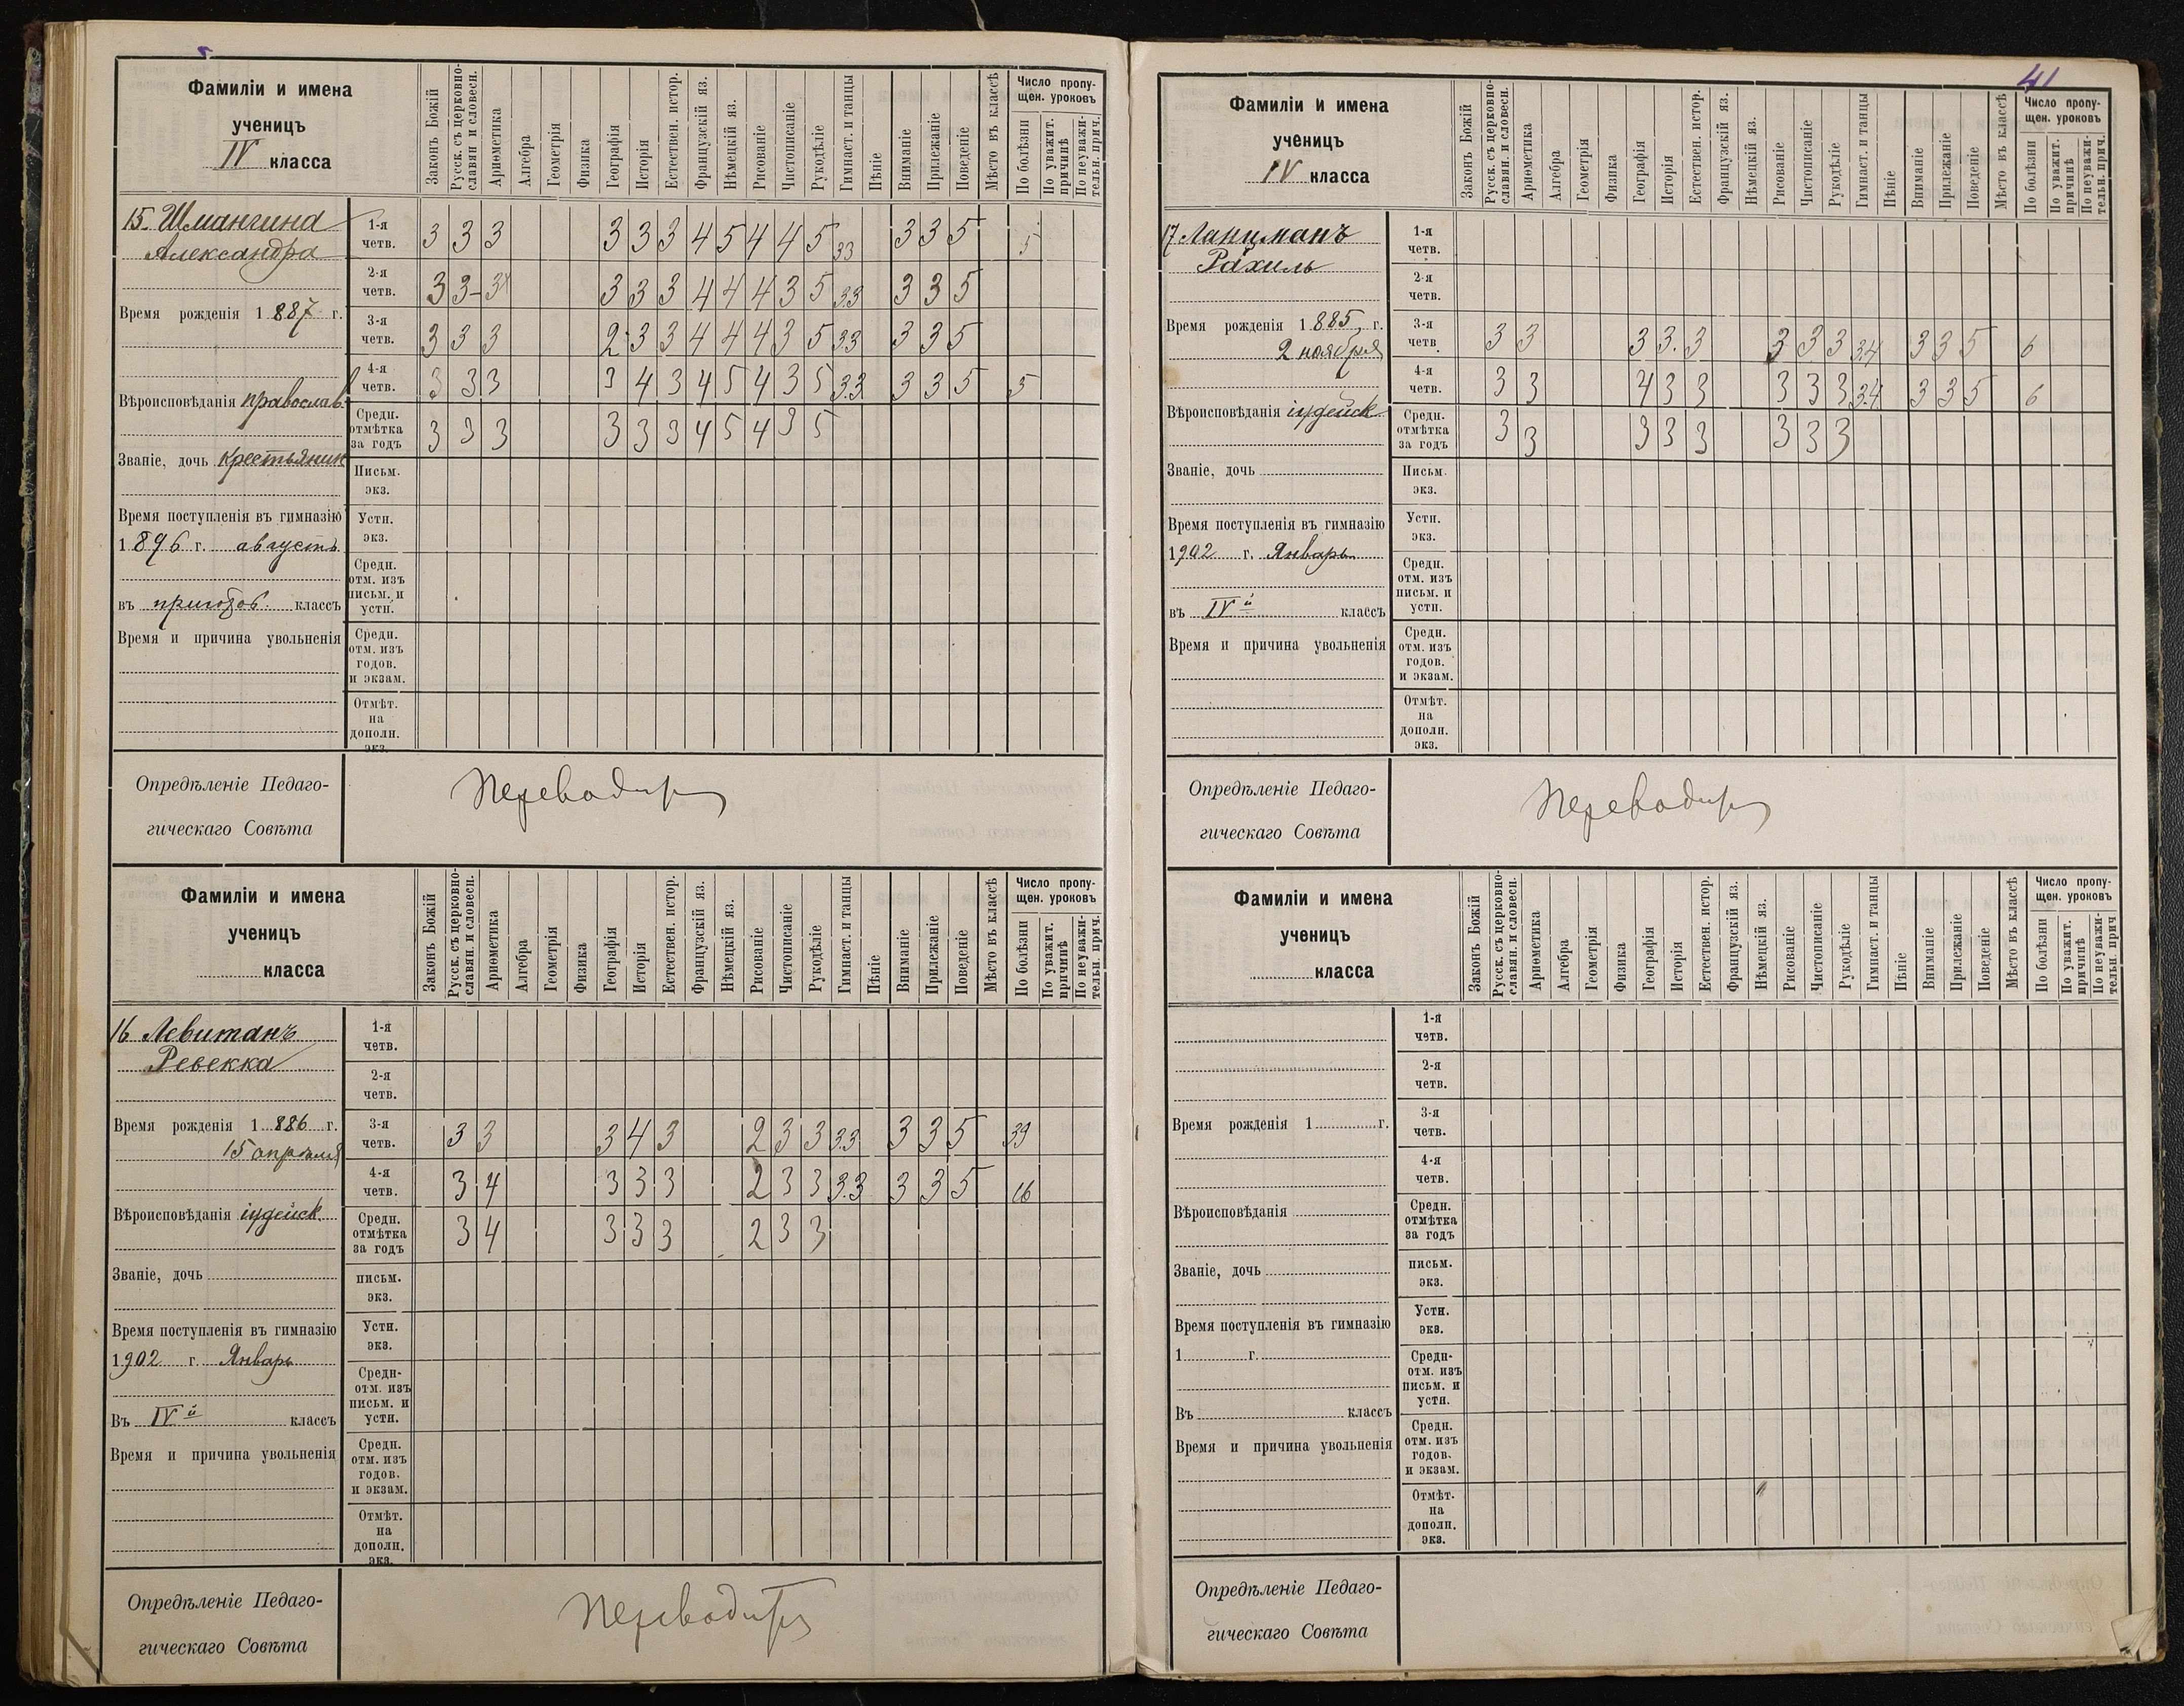 Фамиліи и имена
ученицъ
IV класса
Законъ Божій
Русск. съ церковно-
славян. и словесн.
Ариѳметика
Алгебра
Геометрія
Физика
Географія
Исторія
Естествен. истор.
Французскій яз.
Нѣмецкій яз.
Рисованіе
Чистописаніе
Рукодѣліе
Гимнаст. и танцы
Пѣніе
Вниманіе
Прилежаніе
Поведеніе
Мѣсто въ классѣ
Число пропу-
щен. уроковъ
По болѣзни
По уважит.
причинѣ
По неуважи-
тельн. прич.
15. Шмангина
Александра
Время рожденія 1887 г.
Вѣроисповѣданія православ.
Званіе, дочь крестьянин
Время поступленія въ гимназію
1896 г. августъ
въ приготов. классъ
Время и причина увольненія
1-я четв. 3 3 3 3 3 3 4 5 4 4 5 33 3 3 5 5
2-я четв. 3 3- 3 3 3 3 4 4 4 3 5 33 3 3 5
3-я четв. 3 3 3 2 3 3 4 4 4 3 5 33 3 3 5
4-я четв. 3 3 3 3 4 3 4 5 4 3 5 3.3 3 3 5 5
Средн. отмѣтка за годъ 3 3 3 3 3 3 4 5 4 3 5
Письм. экз.
Устн. экз.
Средн. отм. изъ письм. и устн.
Средн. отм. изъ годов. и экзам.
Отмѣт. на дополн. экз.
Опредѣленіе Педаго-
гическаго Совѣта
Фамиліи и имена
ученицъ
класса
Законъ Божій
Русск. съ церковно-
славян. и словесн.
Ариѳметика
Алгебра
Геометрія
Физика
Географія
Исторія
Естествен. истор.
Французскій яз.
Нѣмецкій яз.
Рисованіе
Чистописаніе
Рукодѣліе
Гимнаст. и танцы
Пѣніе
Вниманіе
Прилежаніе
Поведеніе
Мѣсто въ классѣ
Число пропу-
щен. уроковъ
По болѣзни
По уважит.
причинѣ
По неуважи-
тельн. прич.
16 Левитанъ
Ревекка
Время рожденія 1886 г.
15 апрѣля
Вѣроисповѣданія іудейск.
Званіе, дочь
Время поступленія въ гимназію
1902 г. Январь
Въ IVй классъ
Время и причина увольненія
1-я четв.
2-я четв.
3-я четв. 3 3 3 4 3 2 3 3 33 3 3 5 39
4-я четв. 3 4 3 3 3 2 3 3 3.3 3 3 5 16
Средн. отмѣтка за годъ 3 4 3 3 3 2 3 3
письм. экз.
Устн. экз.
Средн- отм. изъ письм. и устн.
Средн. отм. изъ годов. и экзам.
Отмѣт. на дополн. экз.
Опредѣленіе Педаго-
гическаго Совѣта
41
Фамиліи и имена
ученицъ
IV класса
Законъ Божій
Русск. съ церковно-
славян. и словесн.
Ариѳметика
Алгебра
Геометрія
Физика
Географія
Исторія
Естествен. истор.
Французскій яз.
Нѣмецкій яз.
Рисованіе
Чистописаніе
Рукодѣліе
Гимнаст. и танцы
Пѣніе
Вниманіе
Прилежаніе
Поведеніе
Мѣсто въ классѣ
Число пропу-
щен. уроковъ
По болѣзни
По уважит.
причинѣ
По неуважи-
тельн. прич.
17 Ланцманъ
Рахиль
Время рожденія 1885 г.
2 ноября
Вѣроисповѣданія іудейск.
Званіе, дочь
Время поступленія въ гимназію
1902 г. Январь
въ IVй классъ
Время и причина увольненія
1-я четв.
2-я четв.
3-я четв. 3 3 3 3. 3 3 3 3 34 3 3 5 6
4-я четв. 3 3 4 3 3 3 3 3 3.4 3 3 5 6
Средн. отмѣтка за годъ 3 3 3 3 3 3 3 3
Письм. экз.
Устн. экз.
Средн. отм. изъ письм. и устн.
Средн. отм. изъ годов. и экзам.
Отмѣт. на дополн. экз.
Опредѣленіе Педаго-
гическаго Совѣта
Фамиліи и имена
ученицъ
класса
Законъ Божій
Русск. съ церковно-
славян. и словесн.
Ариѳметика
Алгебра
Геометрія
Физика
Географія
Исторія
Естествен. истор.
Французскій яз.
Нѣмецкій яз.
Рисованіе
Чистописаніе
Рукодѣліе
Гимнаст. и танцы
Пѣніе
Вниманіе
Прилежаніе
Поведеніе
Мѣсто въ классѣ
Число пропу-
щен. уроковъ
По болѣзни
По уважит.
причинѣ
По неуважи-
тельн. прич
Время рожденія 1 г.
Вѣроисповѣданія
Званіе, дочь
Время поступленія въ гимназію
1 г.
Въ классъ
Время и причина увольненія
1-я четв.
2-я четв.
3-я четв.
4-я четв.
Средн. отмѣтка за годъ
письм. экз.
Устн. экз.
Средн- отм. изъ письм. и устн.
Средн. отм. изъ годов. и экзам.
Отмѣт. на дополн. экз.
Опредѣленіе Педаго-
гическаго Совѣта